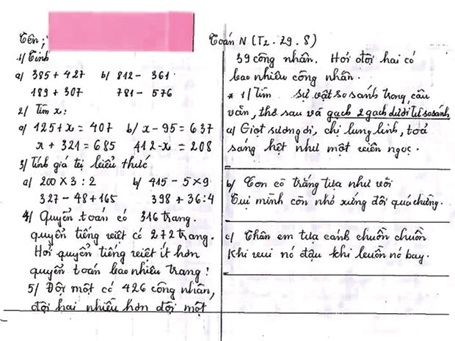 Tên:
1/ Tính
a) 385 + 427 b) 812 - 361
189 + 307 781 - 576
2/ Tìm x:
a) 125 + x = 407 b/ x - 95 = 637
x + 321 = 685 412 - x = 208
3/ Tính giá trị biểu thức
a) 200 x 3 : 2 b) 415 - 5 x 9
327 - 48 + 165 398 + 36 : 4
4/ Quyển toán có 316 trang.
quyển tiếng việt có 272 trang.
Hỏi quyển tiếng việt ít hơn
quyển toán bao nhiêu trang!
5/ Đội một có 426 công nhân,
đội hai nhiều hơn đội một
Toán N (T2. 29. 8)
39 công nhân. Hỏi đội hai có
bao nhiêu công nhân.
* 1/ Tìm sự vật so sánh trong câu
văn, thơ sau và gạch 2 gạch dưới từ so sánh
a) Giọt sương đi, chị lung linh, toả
sáng hệt như một viên ngọc.
b) Con cò trắng tựa như vôi
Tụi mình còn nhỏ xứng đội quá chừng.
c) Thân em tựa cánh chuồn chuồn
Khi vui nó đậu khi buồn nó bay.